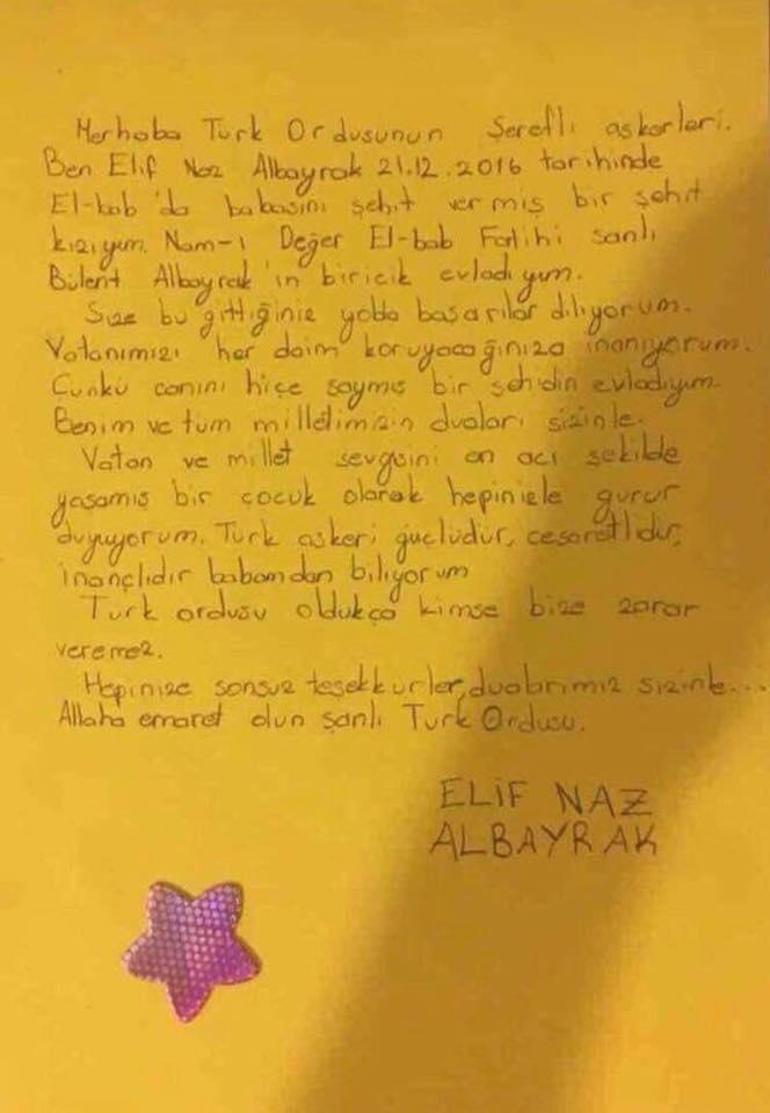 Merhaba Türk Ordusunun Şerefli askerleri.
Ben Elif Naz Albayrak 21.12.2016 tarihinde
El-bab'da babasını şehit vermiş bir şehit
kızıyım. Nam-ı Değer El-bab Fatihi şanlı
Bülent Albayrak'ın biricik evladıyım.
Size bu gittiğiniz yolda başarılar diliyorum.
Vatanımızı her daim koruyacağınıza inanıyorum.
Çünkü canını hiçe saymış bir şehidin evladıyım.
Benim ve tüm milletimizin duaları sizinle.
Vatan ve millet sevgsini en acı şekilde
yaşamış bir çocuk olarak hepinizle gurur
duyuyorum. Türk askeri güçlüdür, cesaretlidir,
inançlıdır babamdan biliyorum
Türk ordusu oldukça kimse bize zarar
veremez.
Hepinize sonsuz teşekkürler, dualarımız sizinle...
Allaha emanet olun şanlı Türk Ordusu.
ELİF NAZ
ALBAYRAK